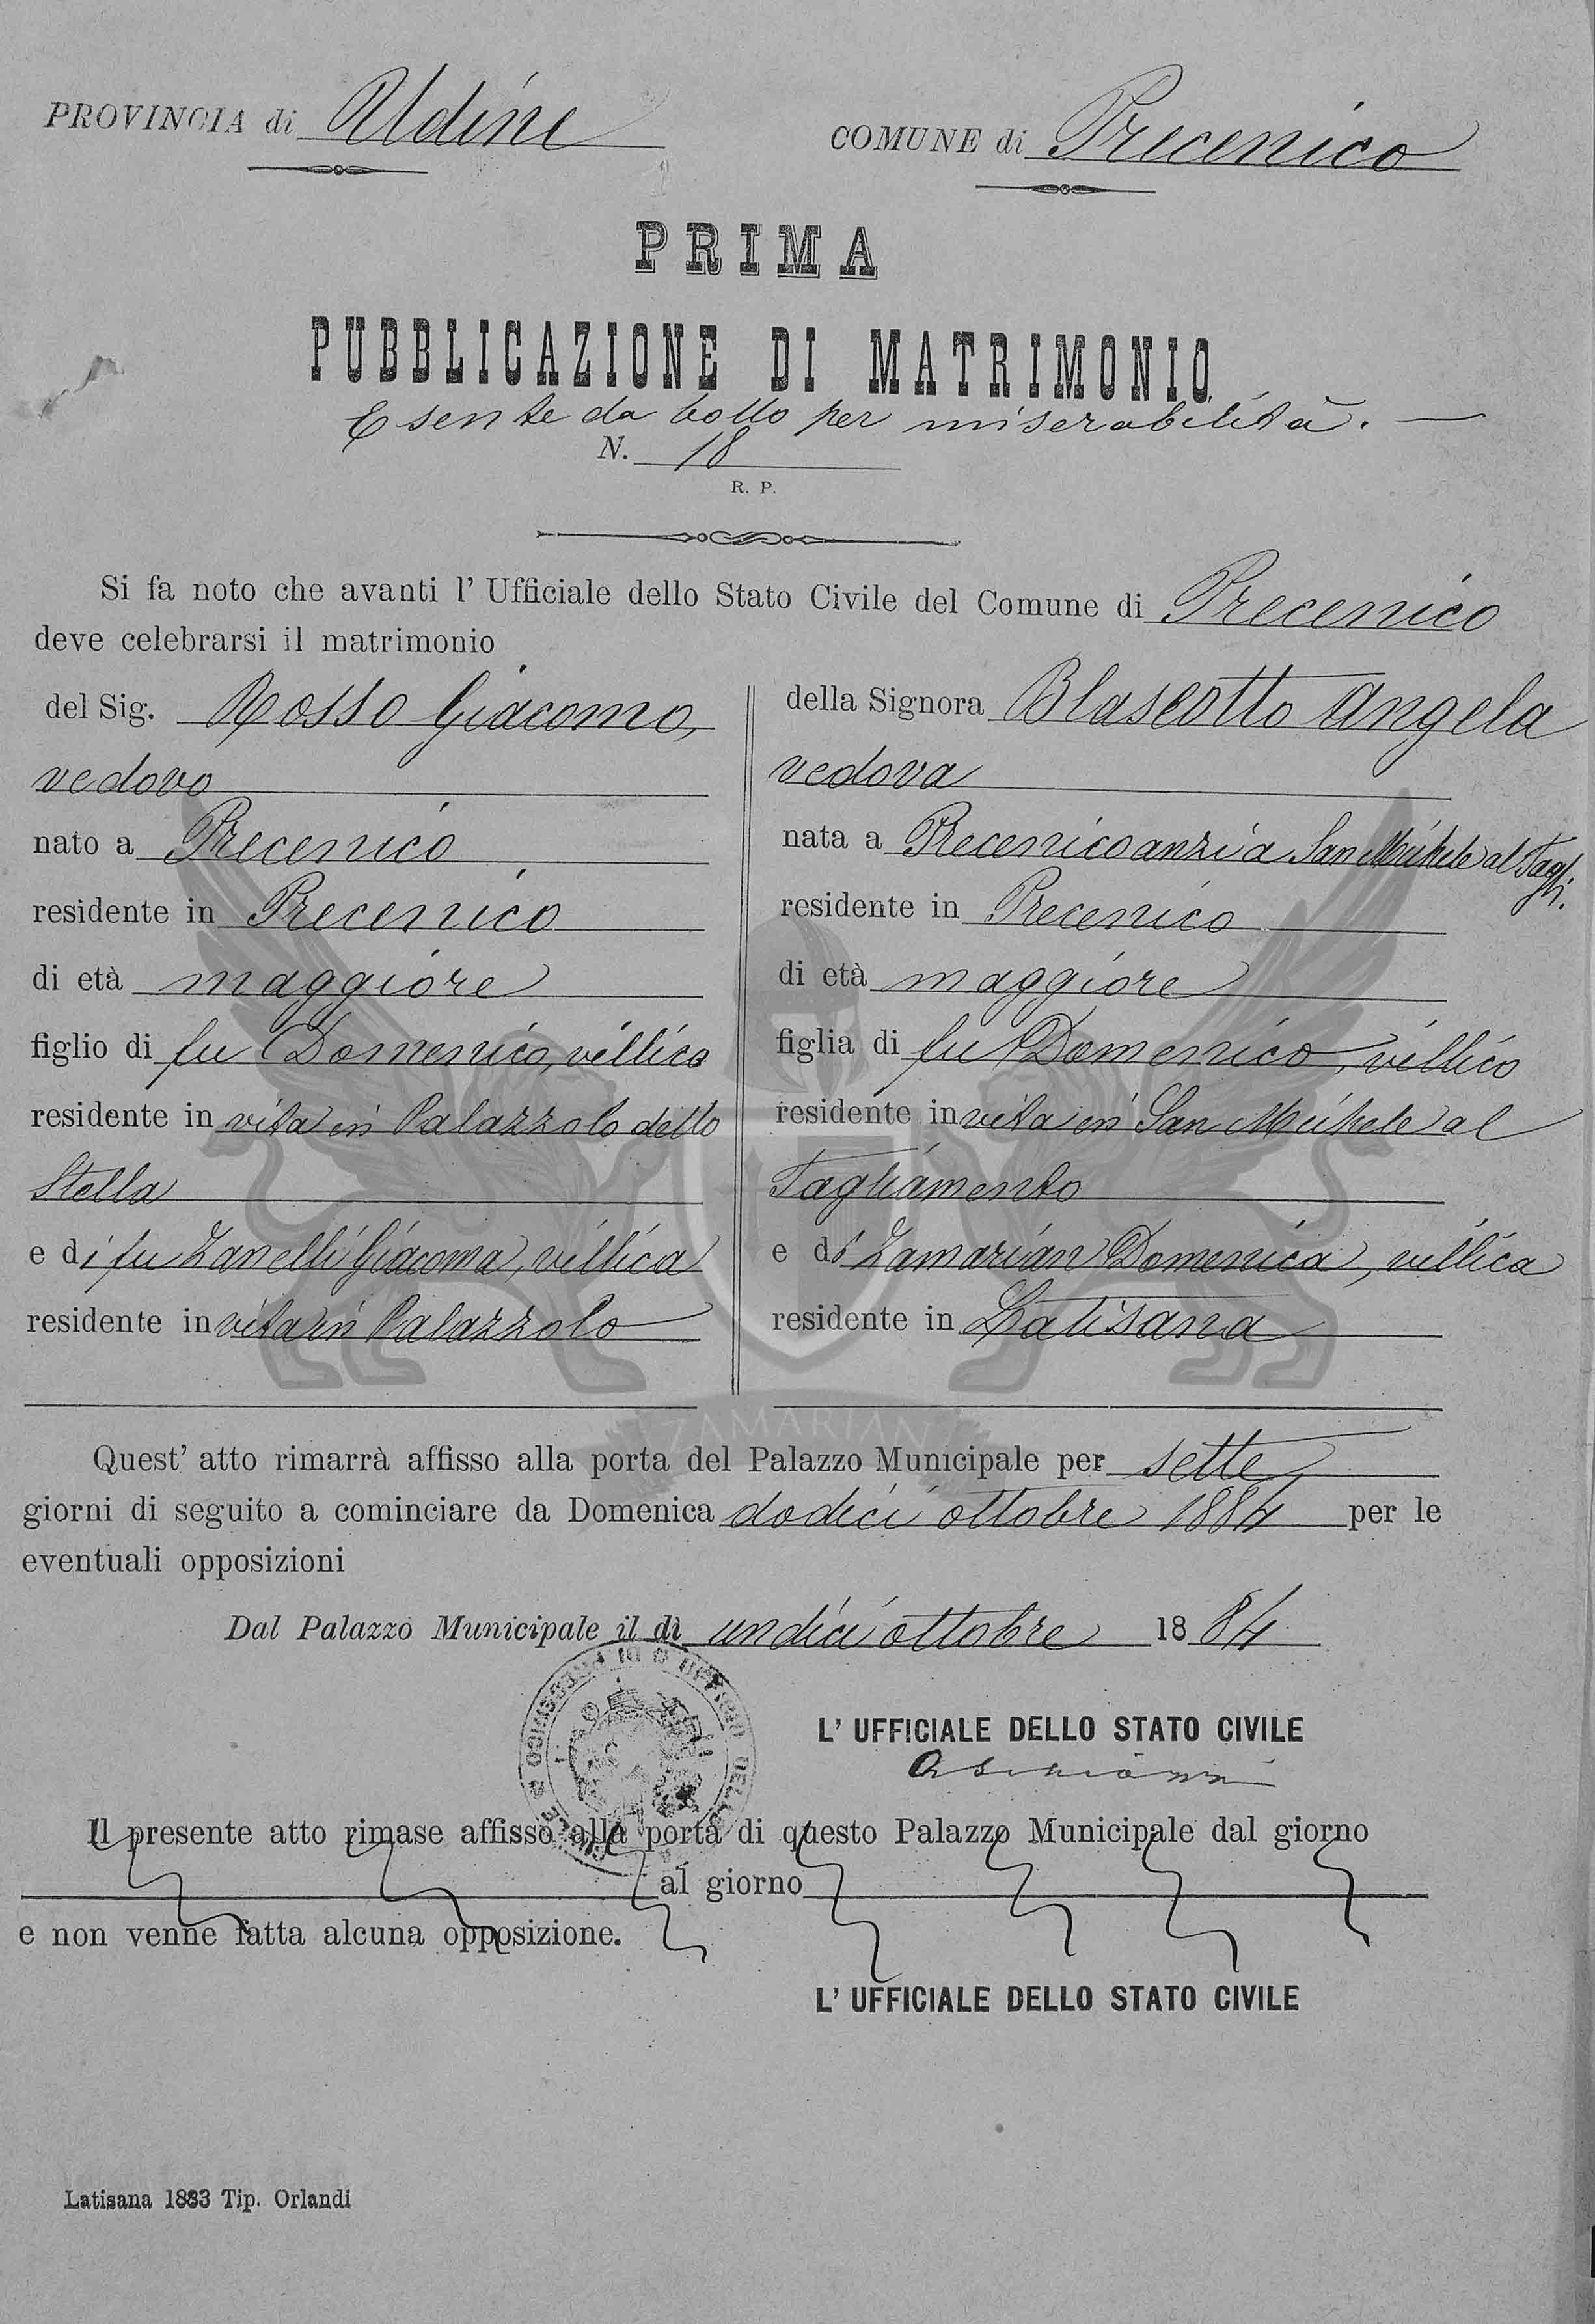 PROVINCIA di Udine
COMUNE di Precenico
PRIMA
PUBBLICAZIONE DI MATRIMONIO
Esente da bollo per miserabilità. —
N. 18
R. P.
Si fa noto che avanti l' Ufficiale dello Stato Civile del Comune di Precenico
deve celebrarsi il matrimonio
del Sig. Rosso Giacomo,
vedovo
nato a Precenico
residente in Precenico
di età maggiore
figlio di fu Domenico, villico
residente in vita in Palazzolo dello
Stella
e di fu Zanelli Giacoma, villica
residente in vita in Palazzolo
della Signora Blaseotto Angela
vedova
nata a Precenico anzi a San Michele al Tagli.
residente in Precenico
di età maggiore
figlia di fu Domenico, villico
residente in vita in San Michele al
Tagliamento
e di Zamarian Domenica, villica
residente in Latisana
ZAMARIAN
Quest' atto rimarrà affisso alla porta del Palazzo Municipale per sette
giorni di seguito a cominciare da Domenica dodici ottobre 1884 per le
eventuali opposizioni
Dal Palazzo Municipale il dì undici ottobre 1884
L' UFFICIALE DELLO STATO CIVILE
Il presente atto rimase affisso alla porta di questo Palazzo Municipale dal giorno
al giorno
e non venne fatta alcuna opposizione.
L' UFFICIALE DELLO STATO CIVILE
Latisana 1883 Tip. Orlandi